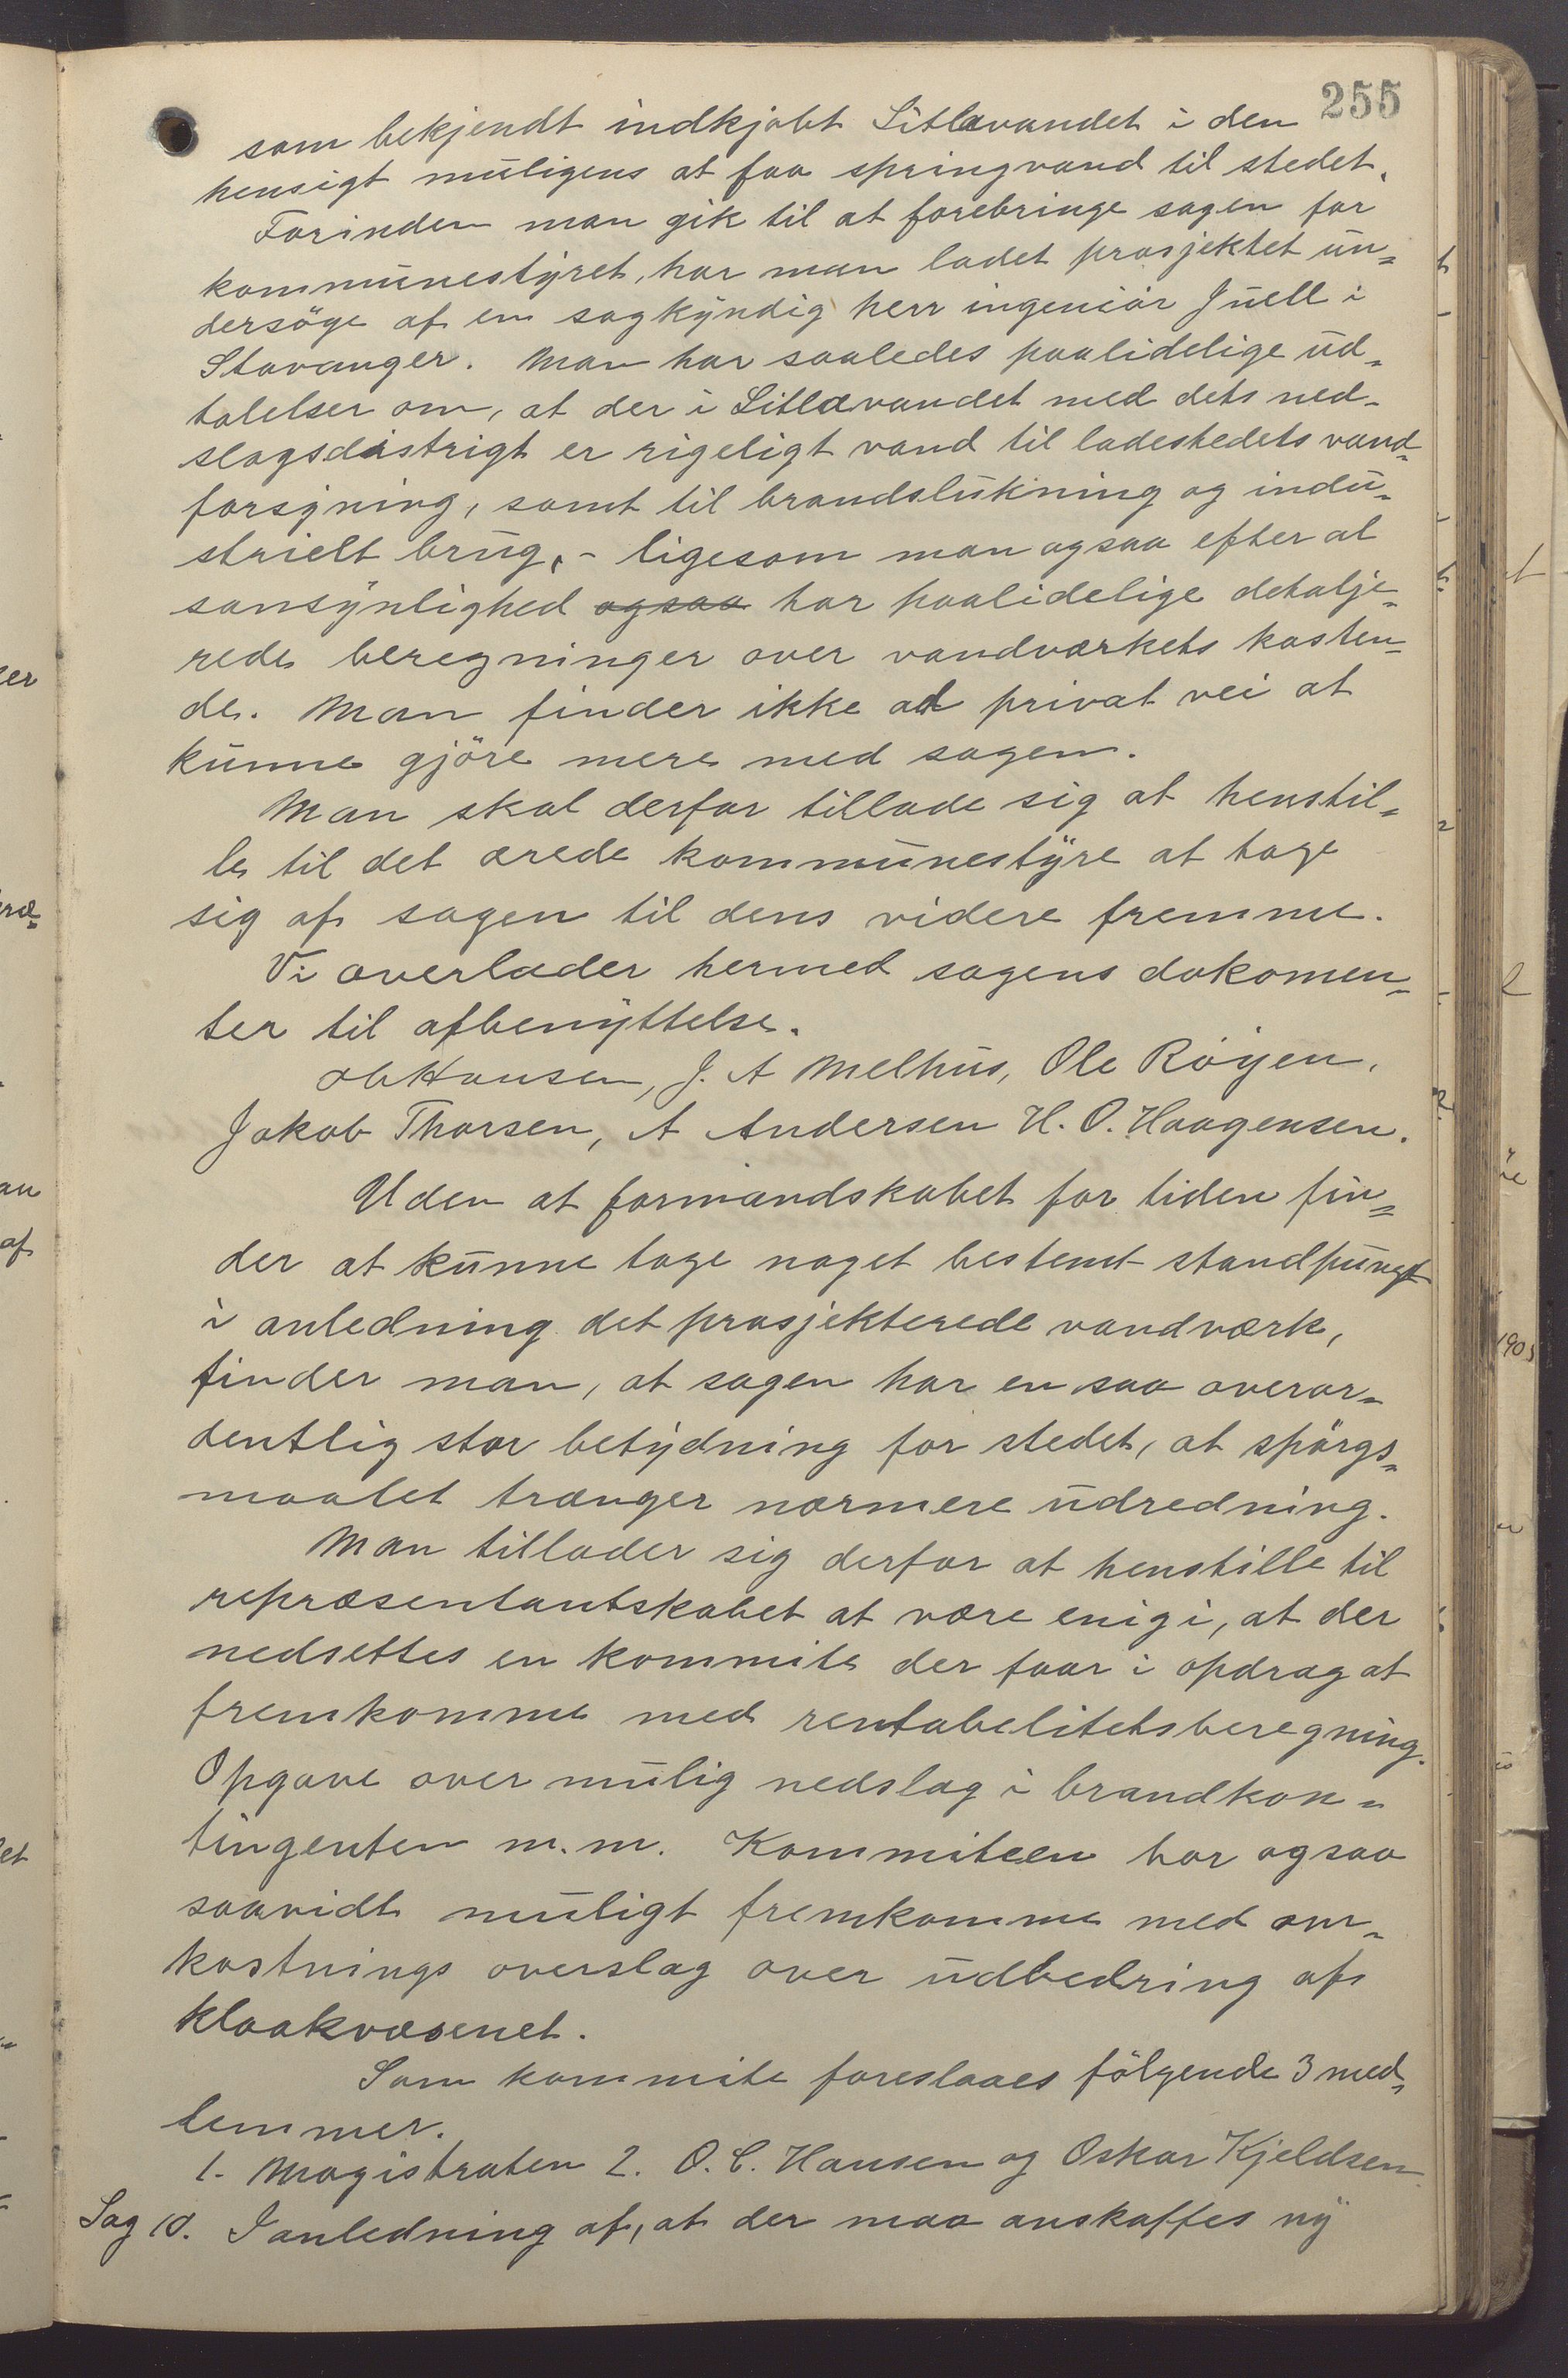 255
som bekjendt indkjøbt Litlavandet i den
hensigt muligens at faa springvand til stedet.
Forinden man gik til at forebringe sagen for
kommunestyret, har man ladet prosjektet un-
dersöge af en sagkyndig herr ingeniör Juell i
Stavanger. Man har saaledes paalidelige ud-
talelser om, at der i Litlavandet med dets ned-
slagsdistrigt er rigeligt vand til ladestedets vand-
forsyning, samt til brandslukning og indu-
strielt brug, - ligesom man ogsaa efter al
sansynlighed ogsaa har paalidelige detalje-
rede beregninger over vandværkets kosten-
de. Man finder ikke ad privat vei at
kunne gjöre mere med sagen.
Man skal derfor tillade sig at henstil-
le til det ærede kommunestyre at tage
sig af sagen til dens videre fremme.
Vi overlader hermed sagens dokomen-
ter til afbenyttelse.
Hansen, J. A Melhus, Ole Röyen.
Jakob Thorsen, A Andersen H. O. Haagensen.
Uden at formandskabet for tiden fin-
der at kunne tage noget bestemt standpungt
i anledning det prosjekterede vandværk,
finder man, at sagen har en saa overor-
dentlig stor betydning for stedet, at spörgs-
maalet trænger nærmere udredning.
Man tillader sig derfor at henstille til
repræsentantskabet at være enig i, at der
nedsettes en kommite der faar i opdrag at
fremkomme med rentabelitetsberegning.
Opgave over mulig nedslag i brandkon-
tingenten m.m. Kommiteen har ogsaa
saavidt muligt fremkomme med om-
kostnings overslag over udbedring af
kloakvæsenet.
Som kommite foreslaaes fölgende 3 med-
lemmer.
1. Magistraten 2. O. C. Hansen og Oskar Kjeldsen
Sag 10. I anledning af, at der maa anskaffes ny